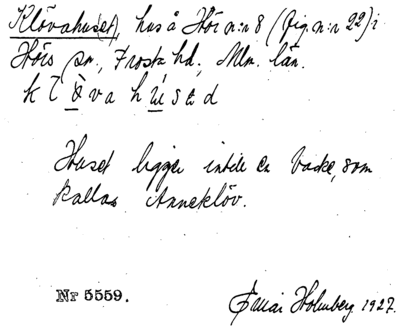 Klövahuset), hus å Hör n:r 8 (fig. n:r 22) i
Hörs sn, Frosta hd, Mlm. län.
Huset ligger intill en backe, som
kallas Anneklöv.
Nr 5559. Holmberg 1927.